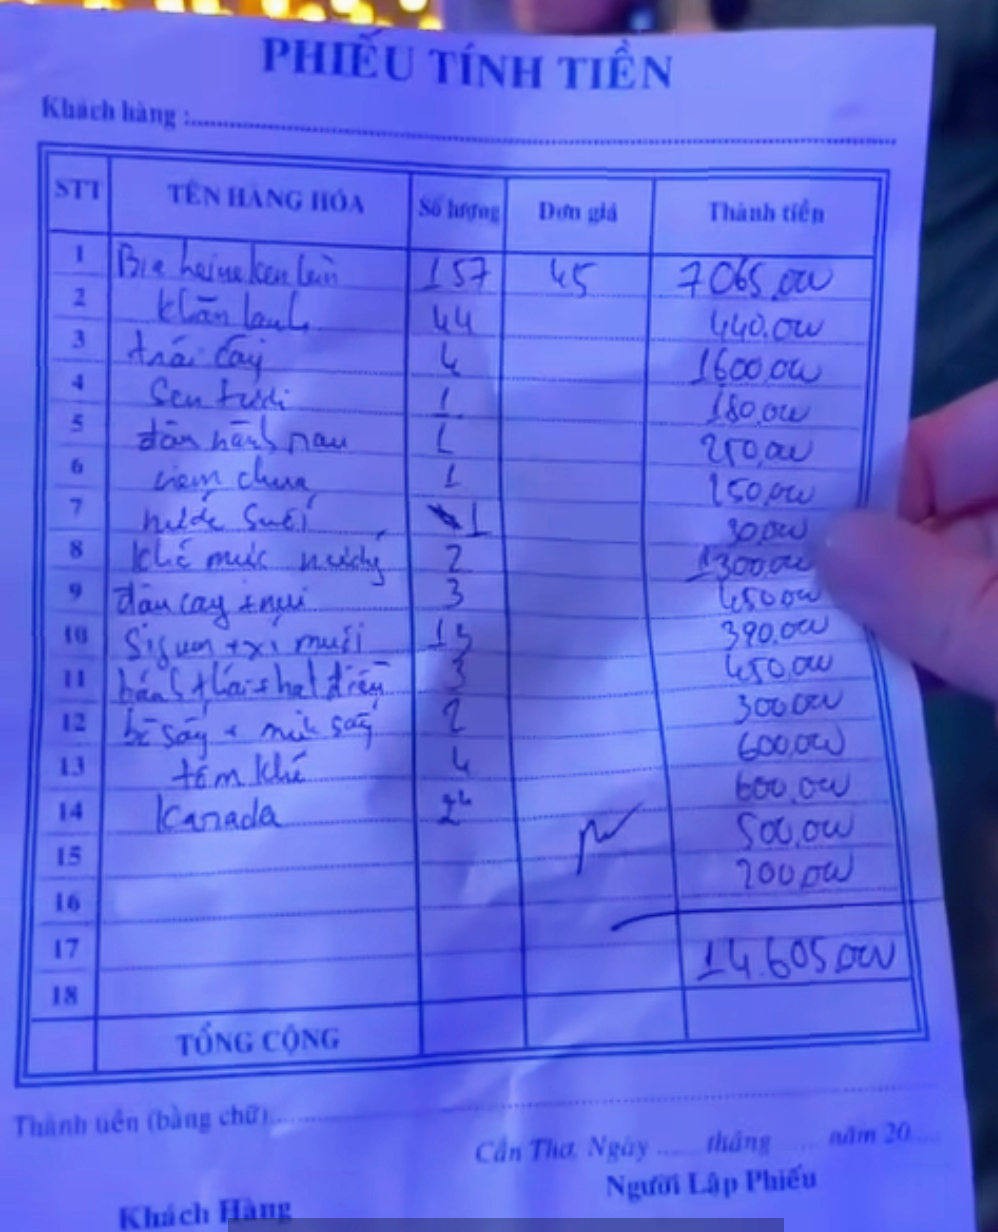 PHIẾU TÍNH TIỀN
Khách hàng :
STT TÊN HÀNG HÓA Số lượng Đơn giá Thành tiền
1 Bia heineken lùn 157 45 7065.000
2 khăn lạnh 44 440.000
3 trái cây 4 1600.000
4 Sen tươi 1 180.000
5 1 250.000
6 nem chua 1 150.000
7 nước suối 1 30.000
8 khô mực nướng 2 1300.000
9 3 450.000
10 + xí muội 13 390.000
11 bánh + hạt điều 3 450.000
12 bò sấy + mực sấy 2 300.000
13 tôm khô 4 600.000
14 Kanada 600.000
15 500.000
16 200.000
17 14.605.000
18
TỔNG CỘNG
Thành tiền (bằng chữ)
Cần Thơ, Ngày ...... tháng ...... năm 20....
Người Lập Phiếu
Khách Hàng